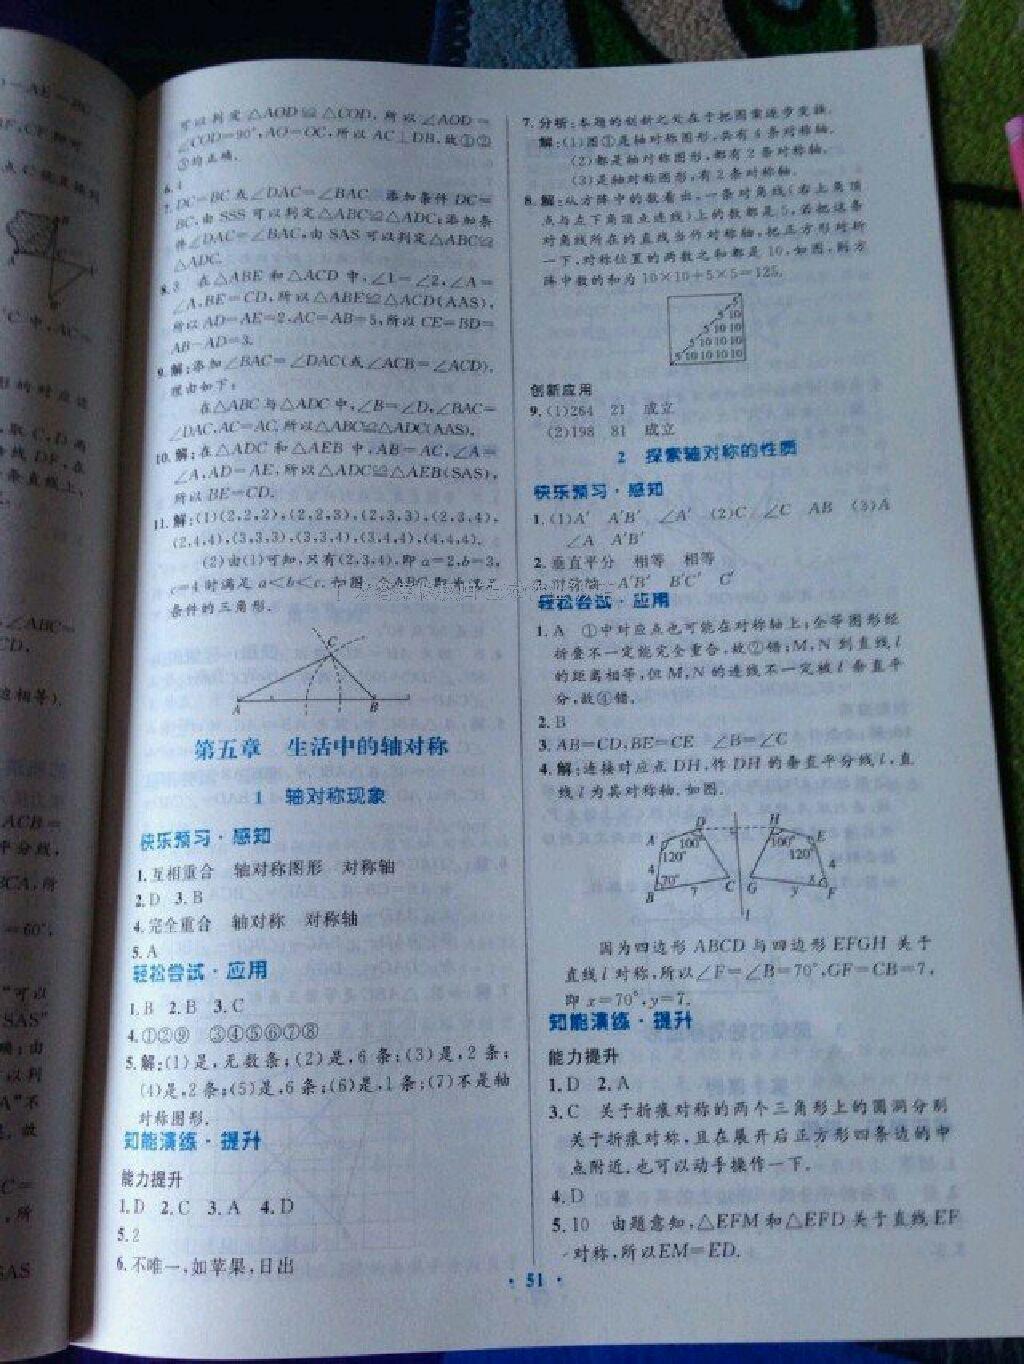 可以判定△AOD≌△COD,所以∠AOD=
∠COD=90°,AO=OC,所以AC⊥DB,故①②
③均正确.
6.4
7.DC=BC或∠DAC=∠BAC 添加条件DC=
BC,由SSS可以判定△ABC≌△ADC;添加条
件∠DAC=∠BAC,由SAS可以判定△ABC≌
△ADC.
8.3 在△ABE和△ACD中,∠1=∠2,∠A=
∠A,BE=CD,所以△ABE≌△ACD(AAS),
所以AD=AE=2,AC=AB=5,所以CE=BD=
AB-AD=3.
9.解:添加∠BAC=∠DAC(或∠ACB=∠ACD),
理由如下:
在△ABC与△ADC中,∠B=∠D,∠BAC=
∠DAC,AC=AC,所以△ABC≌△ADC(AAS).
10.解:在△ADC和△AEB中,AB=AC,∠A=
∠A,AD=AE,所以△ADC≌△AEB(SAS),
所以BE=CD.
11.解:(1)(2,2,2),(2,2,3),(2,3,3),(2,3,4),
(2,4,4),(3,3,3),(3,3,4),(3,4,4),(4,4,4).
(2)由(1)可知,只有(2,3,4),即a=2,b=3,
c=4时满足a<b<c.如图,△ABC即为满足
条件的三角形.
C
A
B
第五章 生活中的轴对称
1 轴对称现象
快乐预习·感知
1.互相重合 轴对称图形 对称轴
2.D 3.B
4.完全重合 轴对称 对称轴
5.A
轻松尝试·应用
1.B 2.B 3.C
4.①②⑨ ③④⑤⑥⑦⑧
5.解:(1)是,无数条;(2)是,6条;(3)是,2条;
(4)是,2条;(5)是,6条;(6)是,1条;(7)不是轴
对称图形.
知能演练·提升
能力提升
1.D 2.C 3.A 4.D
5.2
6.不唯一,如苹果,日出
7.分析:本题的创新之处在于把图案逐步变换.
解:(1)图①是轴对称图形,共有4条对称轴.
(2)都是轴对称图形,都有2条对称轴.
(3)是轴对称图形,有2条对称轴.
8.解:从方阵中的数看出,一条对角线(右上角顶
点与左下角顶点连线)上的数都是5,若把这条
对角线所在的直线当作对称轴,把正方形对折
一下,对称位置的两数之和都是10,如图,则方
阵中数的和为10×10+5×5=125.
5
5 10
5 10 10
5 10 10 10
5 10 10 10 10
创新应用
9.(1)264 21 成立
(2)198 81 成立
2 探索轴对称的性质
快乐预习·感知
1.(1)A′ A′B′ ∠A′ (2)C ∠C AB (3)A
∠A A′B′
2.垂直平分 相等 相等
3.对称轴 A′B′ B′C′ C′
轻松尝试·应用
1.A ①中对应点也可能在对称轴上;全等图形经
折叠不一定能完全重合,故②错;M,N到直线l
的距离相等,但M,N的连线不一定被l垂直平
分,故④错.
2.B
3.AB=CD,BE=CE ∠B=∠C
4.解:连接对应点DH,作DH的垂直平分线l,直
线l为其对称轴.如图.
D H
A 100° 100° E
120° 120°
4 4
70° x
B 7 C G y F
l
因为四边形ABCD与四边形EFGH关于
直线l对称,所以∠F=∠B=70°,GF=CB=7,
即x=70°,y=7.
知能演练·提升
能力提升
1.D 2.A
3.C 关于折痕对称的两个三角形上的圆洞分别
关于折痕对称,且在展开后正方形四条边的中
点附近.也可以动手操作一下.
4.D
5.10 由题意知,△EFM和△EFD关于直线EF
对称,所以EM=ED.
· 51 ·